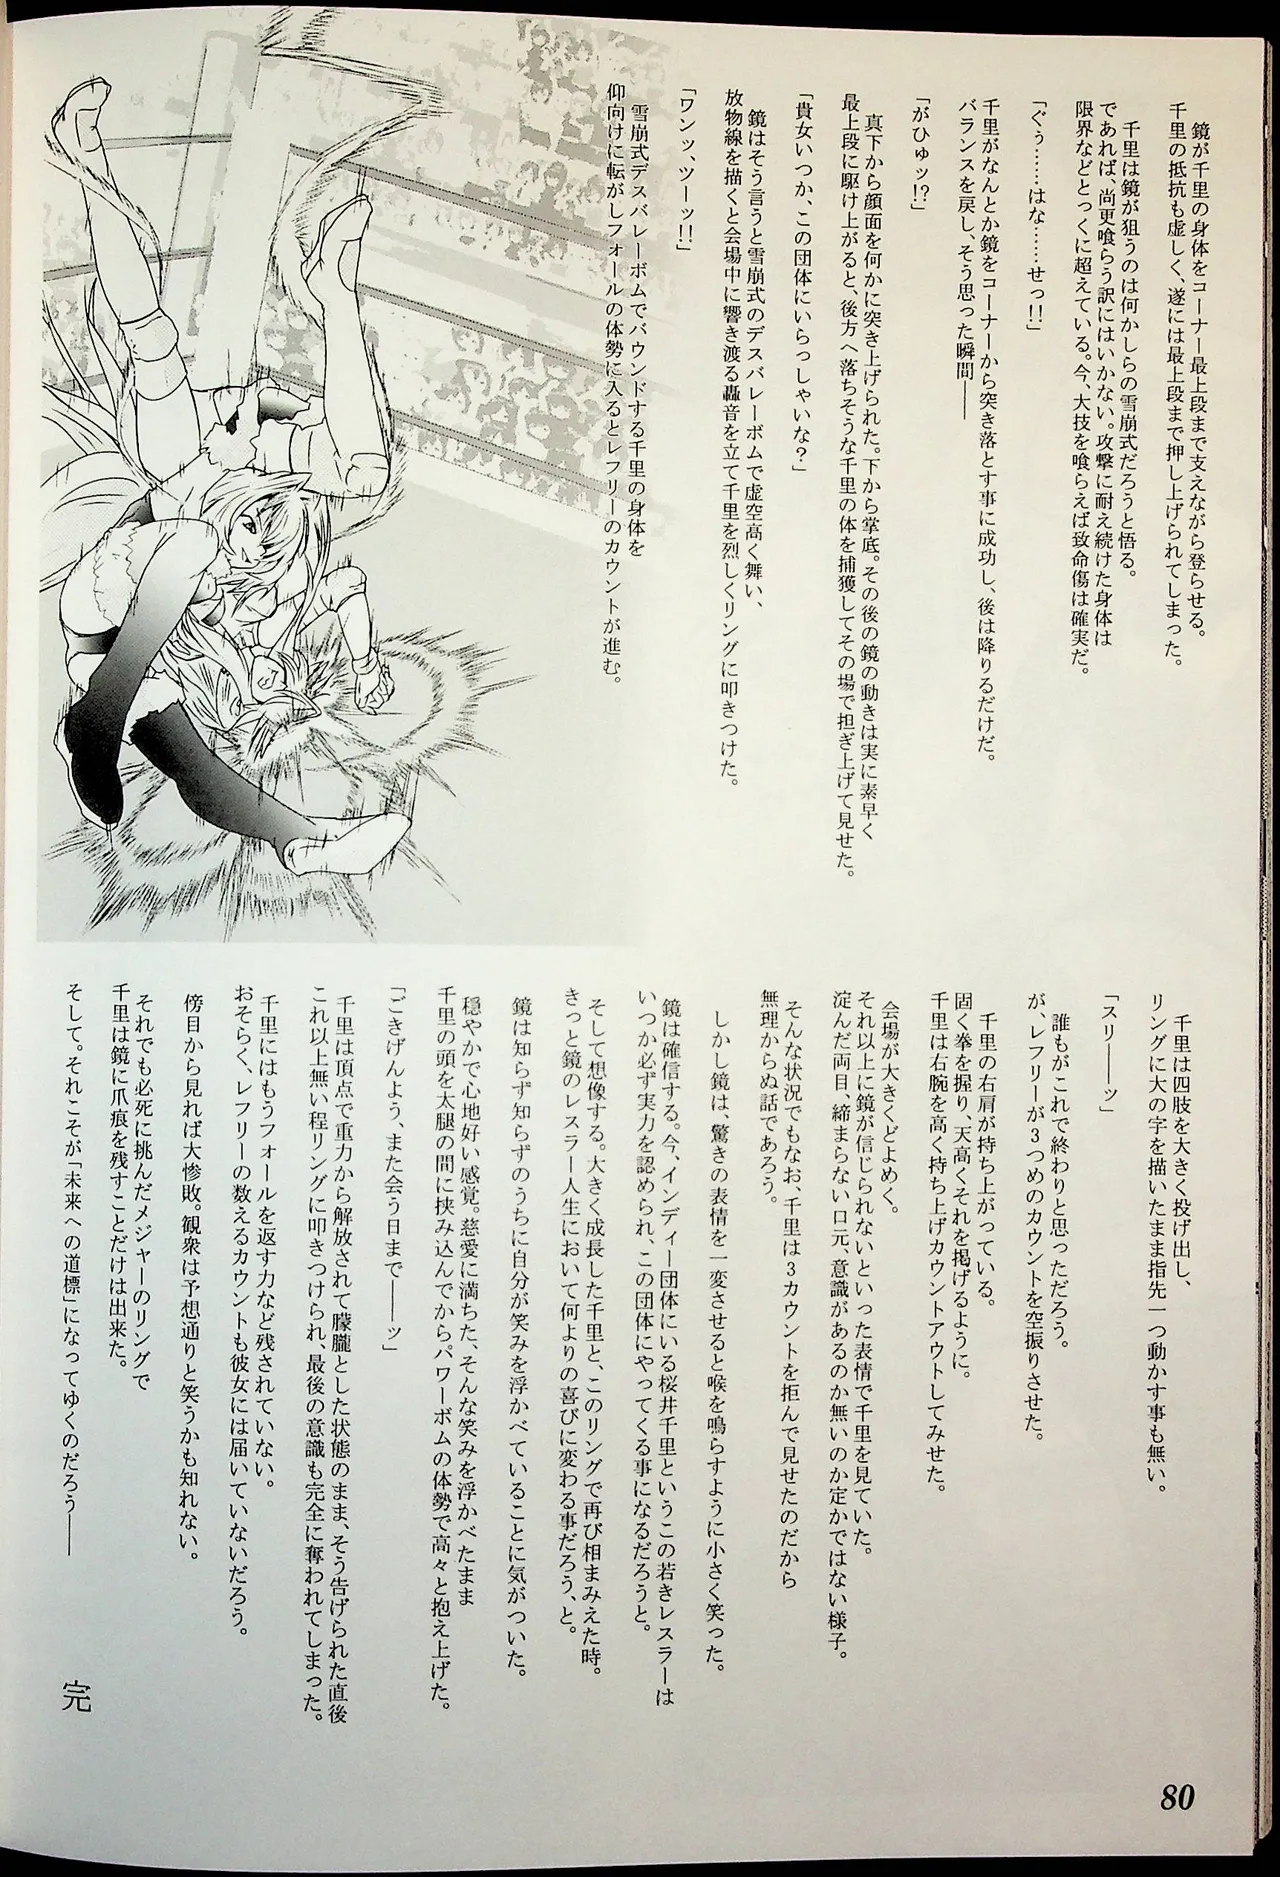 鏡が千里の身体をコーナー最上段まで支えながら登らせる。
千里の抵抗も虚しく、遂には最上段まで押し上げられてしまった。
千里は鏡が狙うのは何かしらの雪崩式だろうと悟る。
であれば、尚更喰らう訳にはいかない。攻撃に耐え続けた身体は
限界などとっくに超えている。今、大技を喰らえば致命傷は確実だ。
「ぐぅ……はな……せっ!!」
千里がなんとか鏡をコーナーから突き落とす事に成功し、後は降りるだけだ。
バランスを戻し、そう思った瞬間――
「がひゅッ!?」
真下から顔面を何かに突き上げられた。下から掌底。その後の鏡の動きは実に素早く
最上段に駆け上がると、後方へ落ちそうな千里の体を捕獲してその場で担ぎ上げて見せた。
「貴女いつか、この団体にいらっしゃいな?」
鏡はそう言うと雪崩式のデスバレーボムで虚空高く舞い、
放物線を描くと会場中に響き渡る轟音を立て千里を烈しくリングに叩きつけた。
「ワンッ、ツーッ!!」
雪崩式デスバレーボムでバウンドする千里の身体を
仰向けに転がしフォールの体勢に入るとレフリーのカウントが進む。
千里は四肢を大きく投げ出し、
リングに大の字を描いたまま指先一つ動かす事も無い。
「スリーーッ」
誰もがこれで終わりと思っただろう。
が、レフリーが3つめのカウントを空振りさせた。
千里の右肩が持ち上がっている。
固く拳を握り、天高くそれを掲げるように。
千里は右腕を高く持ち上げカウントアウトしてみせた。
会場が大きくどよめく。
それ以上に鏡が信じられないといった表情で千里を見ていた。
淀んだ両目、締まらない口元、意識があるのか無いのか定かではない様子。
そんな状況でもなお、千里は3カウントを拒んで見せたのだから
無理からぬ話であろう。
しかし鏡は、驚きの表情を一変させると喉を鳴らすように小さく笑った。
鏡は確信する。今、インディー団体にいる桜井千里というこの若きレスラーは
いつか必ず実力を認められ、この団体にやってくる事になるだろうと。
そして想像する。大きく成長した千里と、このリングで再び相まみえた時。
きっと鏡のレスラー人生において何よりの喜びに変わる事だろう、と。
鏡は知らず知らずのうちに自分が笑みを浮かべていることに気がついた。
穏やかで心地好い感覚。慈愛に満ちた、そんな笑みを浮かべたまま
千里の頭を太腿の間に挟み込んでからパワーボムの体勢で高々と抱え上げた。
「ごきげんよう、また会う日まで――ッ」
千里は頂点で重力から解放されて朦朧とした状態のまま、そう告げられた直後
これ以上無い程リングに叩きつけられ、最後の意識も完全に奪われてしまった。
千里にはもうフォールを返す力など残されていない。
おそらく、レフリーの数えるカウントも彼女には届いていないだろう。
傍目から見れば大惨敗。観衆は予想通りと笑うかも知れない。
それでも必死に挑んだメジャーのリングで
千里は鏡に爪痕を残すことだけは出来た。
そして。それこそが「未来への道標」になってゆくのだろう――
完
80